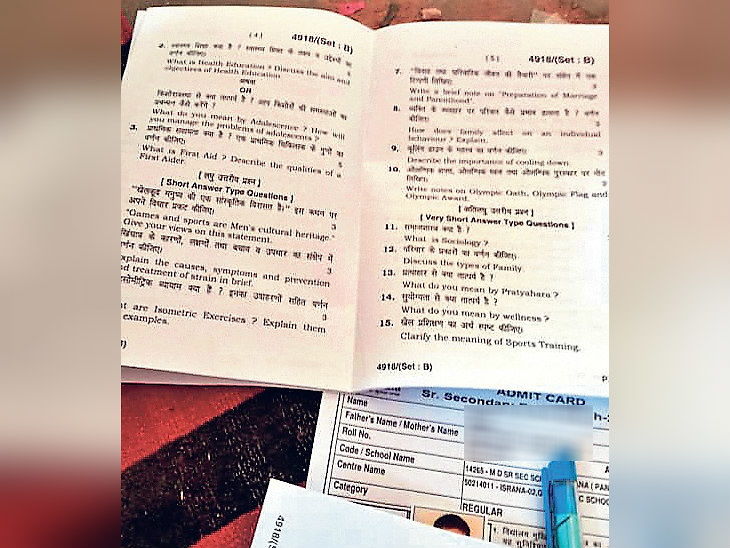 ( 4 )
4918/(Set : B)
2. स्वास्थ्य शिक्षा क्या है ? स्वास्थ्य शिक्षा के लक्ष्य व उद्देश्यों का
वर्णन कीजिए।
5
What is Health Education ? Discuss the aim and
objectives of Health Education.
अथवा
OR
किशोरावस्था से क्या तात्पर्य है ? आप किशोरों की समस्याओं का
प्रबन्धन कैसे करेंगे ?
What do you mean by Adolescence ? How will
you manage the problems of adolescents ?
3. प्राथमिक सहायता क्या है ? एक प्राथमिक चिकित्सक के गुणों का
वर्णन कीजिए।
5
What is First Aid ? Describe the qualities of a
First Aider.
[ लघु उत्तरीय प्रश्न ]
[ Short Answer Type Questions ]
"खेलकूद मनुष्य की एक सांस्कृतिक विरासत है।" इस कथन पर
अपने विचार प्रकट कीजिए।
3
"Games and sports are Men's cultural heritage."
Give your views on this statement.
के कारणों, लक्षणों तथा बचाव व उपचार का संक्षेप में
वर्णन कीजिए।
3
xplain the causes, symptoms and prevention
d treatment of strain in brief.
व्यायाम क्या है ? इनका उदाहरणों सहित वर्णन
3
t are Isometric Exercises ? Explain them
examples.
B)
( 5 )
4918/(Set : B)
7. "विवाह तथा पारिवारिक जीवन की तैयारी" पर संक्षेप में एक
टिप्पणी लिखिए।
3
Write a brief note on "Preparation of Marriage
and Parenthood".
8. व्यक्ति के व्यवहार पर परिवार कैसे प्रभाव डालता है ? वर्णन
कीजिए।
3
How does family affect on an individual
behaviour ? Explain.
9. कूलिंग डाउन के महत्त्व का वर्णन कीजिए।
3
Describe the importance of cooling down.
10. ओलम्पिक शपथ, ओलम्पिक ध्वज तथा ओलम्पिक पुरस्कार पर नोट
लिखिए।
3
Write notes on Olympic Oath, Olympic Flag and
Olympic Award.
[ अतिलघु उत्तरीय प्रश्न ]
[ Very Short Answer Type Questions ]
11. समाजशास्त्र क्या है ?
What is Sociology ?
12. परिवार के प्रकारों का वर्णन कीजिए।
Discuss the types of Family.
13. प्रत्याहार से क्या तात्पर्य है ?
What do you mean by Pratyahara ?
14. सुयोग्यता से क्या तात्पर्य है ?
What do you mean by wellness ?
15. खेल प्रशिक्षण का अर्थ स्पष्ट कीजिए।
Clarify the meaning of Sports Training.
4918/(Set : B)
P.
ADMIT CARD
Sr. Secondary
Name
Father's Name / Mother's Name
Roll No.
Code / School Name
14265 - M D SR SEC SC
ANA ( PAN
Centre Name
50214011 - ISRANA-02,G
C SCHOO
Category
REGULAR
1. विद्यालय
4918/(S